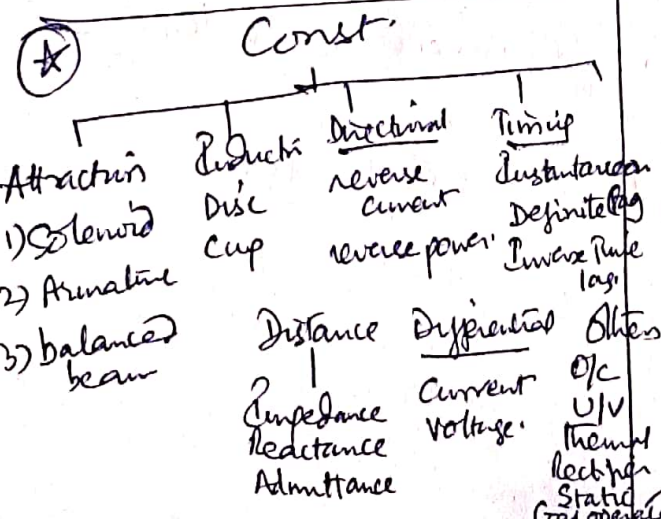 Const.
Attraction
1) Solenoid
2) Armature
3) balanced
beam
Inductn
Disc
Cup
Directional
reverse
current
reverse power.
Timing
Instantaneou
Definite lag
Inverse Time
lag.
Distance
Impedance
Reactance
Admittance
Differential
Current
Voltage.
Others
O/C
U/V
Thermal
Rectifier
Static